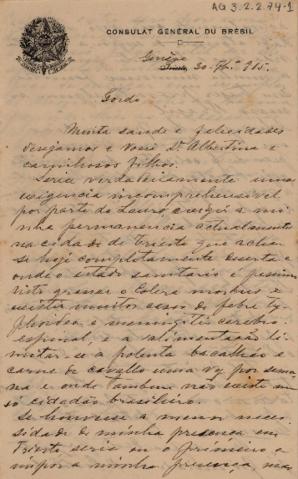 AG 3.2.2.74-1
CONSULAT GÉNÉRAL DU BRÉSIL
Genève
30 1915.
Gordo
Muita saude e felicidades
desejamos a você, Dª Albertina e
carinhosos filhos.
Seria verdadeiramente uma
exigencia incomprehensivel
por parte do Lauro, exigir a mi-
nha permanencia actualmente
na cidade de Trieste que acha-
se hoje completamente deserta e
onde o estado sanitario é pessimo
visto grassar o Colera morbus e
existir muitos casos de febre ty-
phoidea e meningitis cerebro
espinal, e a alimentação li-
mitar-se a polenta bacalhão e
carne de cavallo uma vez por sema-
na e onde tambem não existe um
só cidadão brasileiro.
Se houvesse a menor neces-
sidade de minha presença em
Trieste seria eu o primeiro a
impor a minha presença, mas